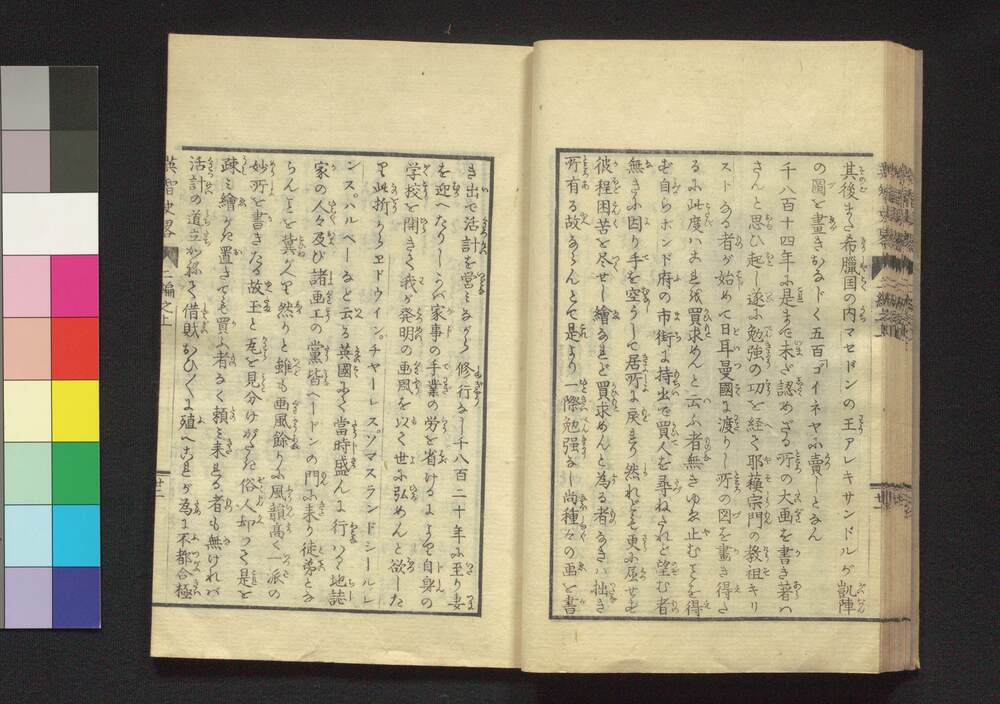 其後また希臘国の内マセドンの王アレキサンドルが凱陣
の圖を畫きおなじく五百ゴイネヤに賣しとなん
千八百十四年に是まで未だ認めざる所の大画を書き著は
さんと思ひ起し遂に勉強の功を経て耶蘓宗門の教祖キリ
ストなる者が始めて日耳曼國に渡りし所の図を畫き得た
るに此度はまれ我買求めんと云ふ者無きゆゑ止むことを得
ず自らホンド府の市街に持出て買人を尋ねされど望む者
無きに因り手を空うして居所に戻れり然れども更に屈せず
彼程困苦を尽せし繪なれど買求めんと為る者なきハ拙き
所有る故ならんとて是より一際勉強なし尚種々の画を書
き出て活計を營みながら修行なし千八百二十年に至り妻
を迎へたりしうが家事の手業の労を省けるより自身の
学校を開きて我が発明の画風を以て世に弘めんと欲した
り此折からヱドウイン。チャーレス。ソマスランドシールレ
ンス。ハルベーなど云る英國にて當時盛んに行はる地誌
家の人々及び諸画工の黨皆ヘードンの門に来り徒弟とな
らんことを冀がへり然りと雖も画風餘りに風韻高く一派の
妙所を書きたる故玉と瓦を見分けがたき俗人却つて是を
疎み繪がき置きても買ふ者なく頼み来る者も無けれバ
活計の道立かねて借財おひ〳〵に殖へこれが為に不都合極
英智史畧 二編之上 廿二